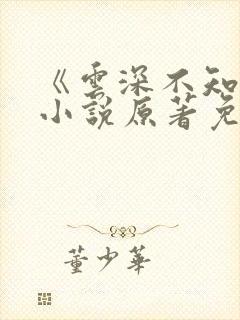 《雲深不知
小說原著免
董少華